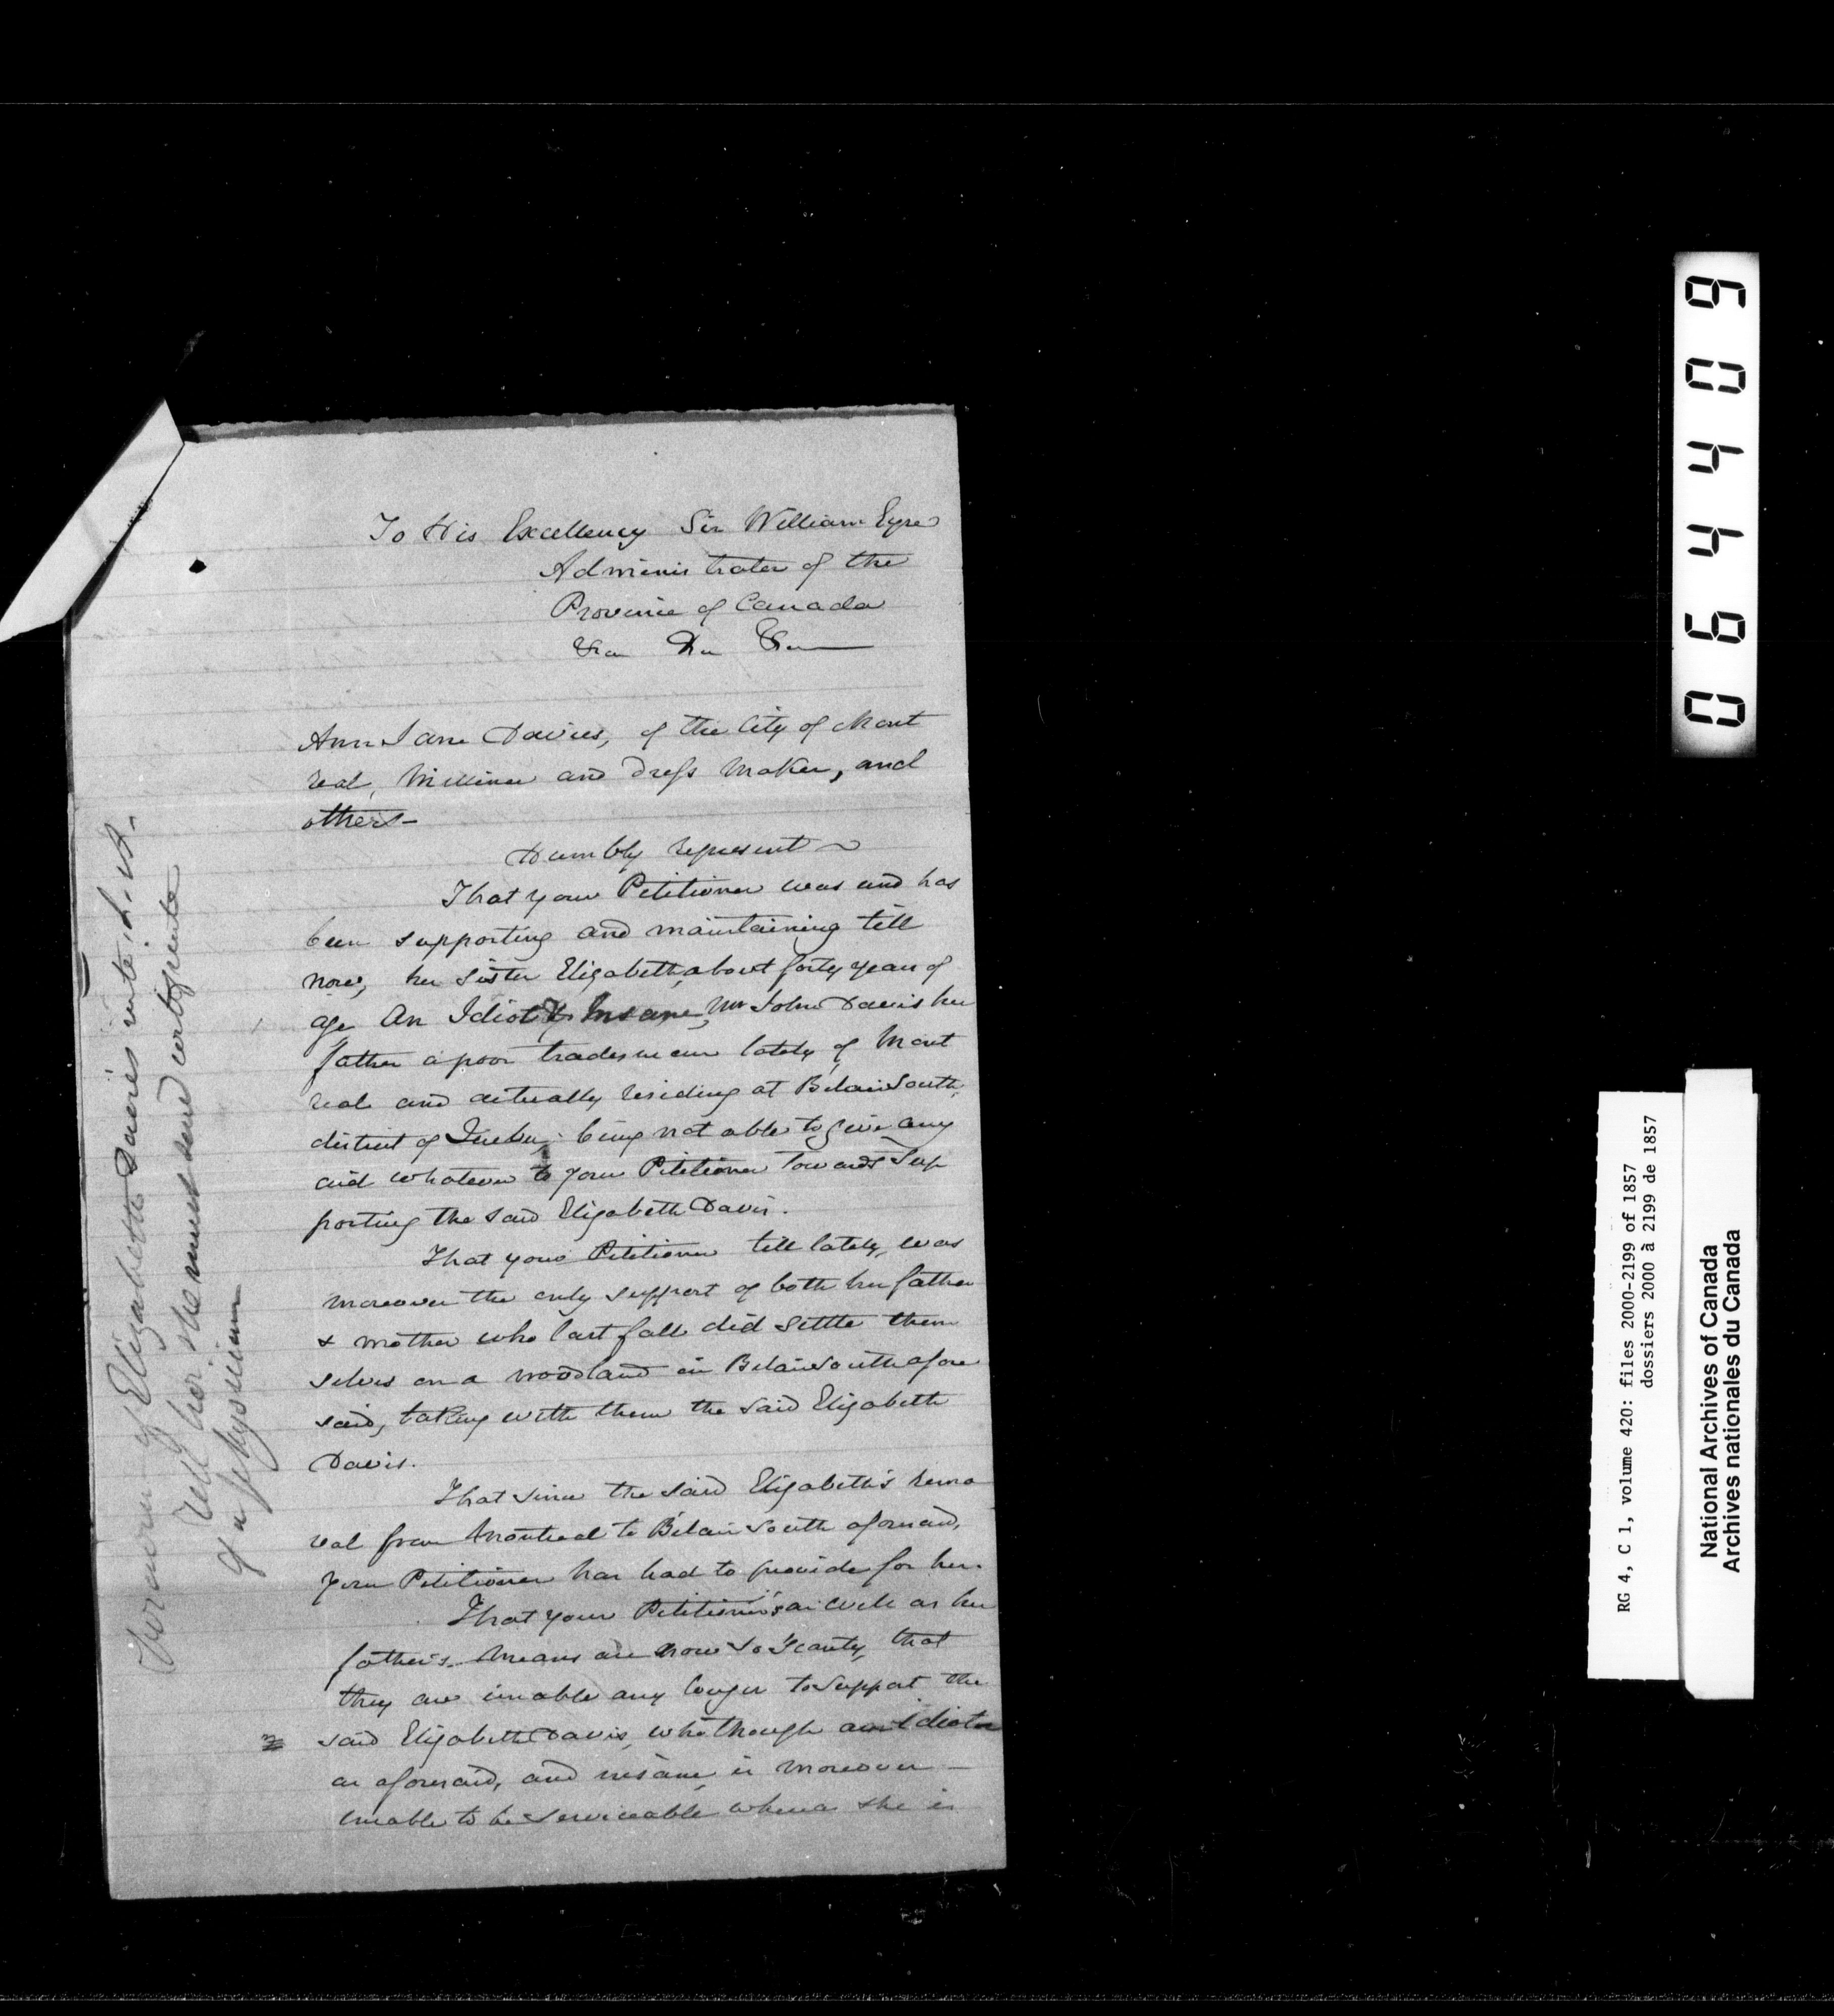 To His Excellency Sir William Eyre
Administrator of the
Province of Canada
&ca &ca &ca
Ann Jane Davies, of the City of Mont
real, Milliner and Dress Maker, and
others-
Humbly represent
That your Petitioner was and has
been supporting and maintaining till
now, her sister Elizabeth, about forty years of
age An Idiot & Insane, Mr John Davis her
father a poor tradesman lately of Mont
real and actually residing at Belair South,
district of Quebec, being not able to give any
aid whatever to your Petitioner towards Sup
porting the said Elizabeth Davis.
That your Petitioner till lately, was
moreover the only support of both her father
& mother who last fall did settle them
selves on a woodland in Belair South afore
said, taking with them the said Elizabeth
Davis.
That since the said Elizabeth's remo
val from Montreal to Bélair South aforesaid,
your Petitioner has had to provide for her.
That your Petitioner's as well as her
father's means are now so scanty, that
they are unable any longer to support the
said Elizabeth Davis, who though an Idiot
as aforesaid, and insane, is moreover -
unable to be serviceable where she is
of Elizabeth Davies into L. A.
Tell her she must send certificate
of a physician
064409
RG 4, C 1, volume 420: files 2000-2199 of 1857
dossiers 2000 à 2199 de 1857
National Archives of Canada
Archives nationales du Canada